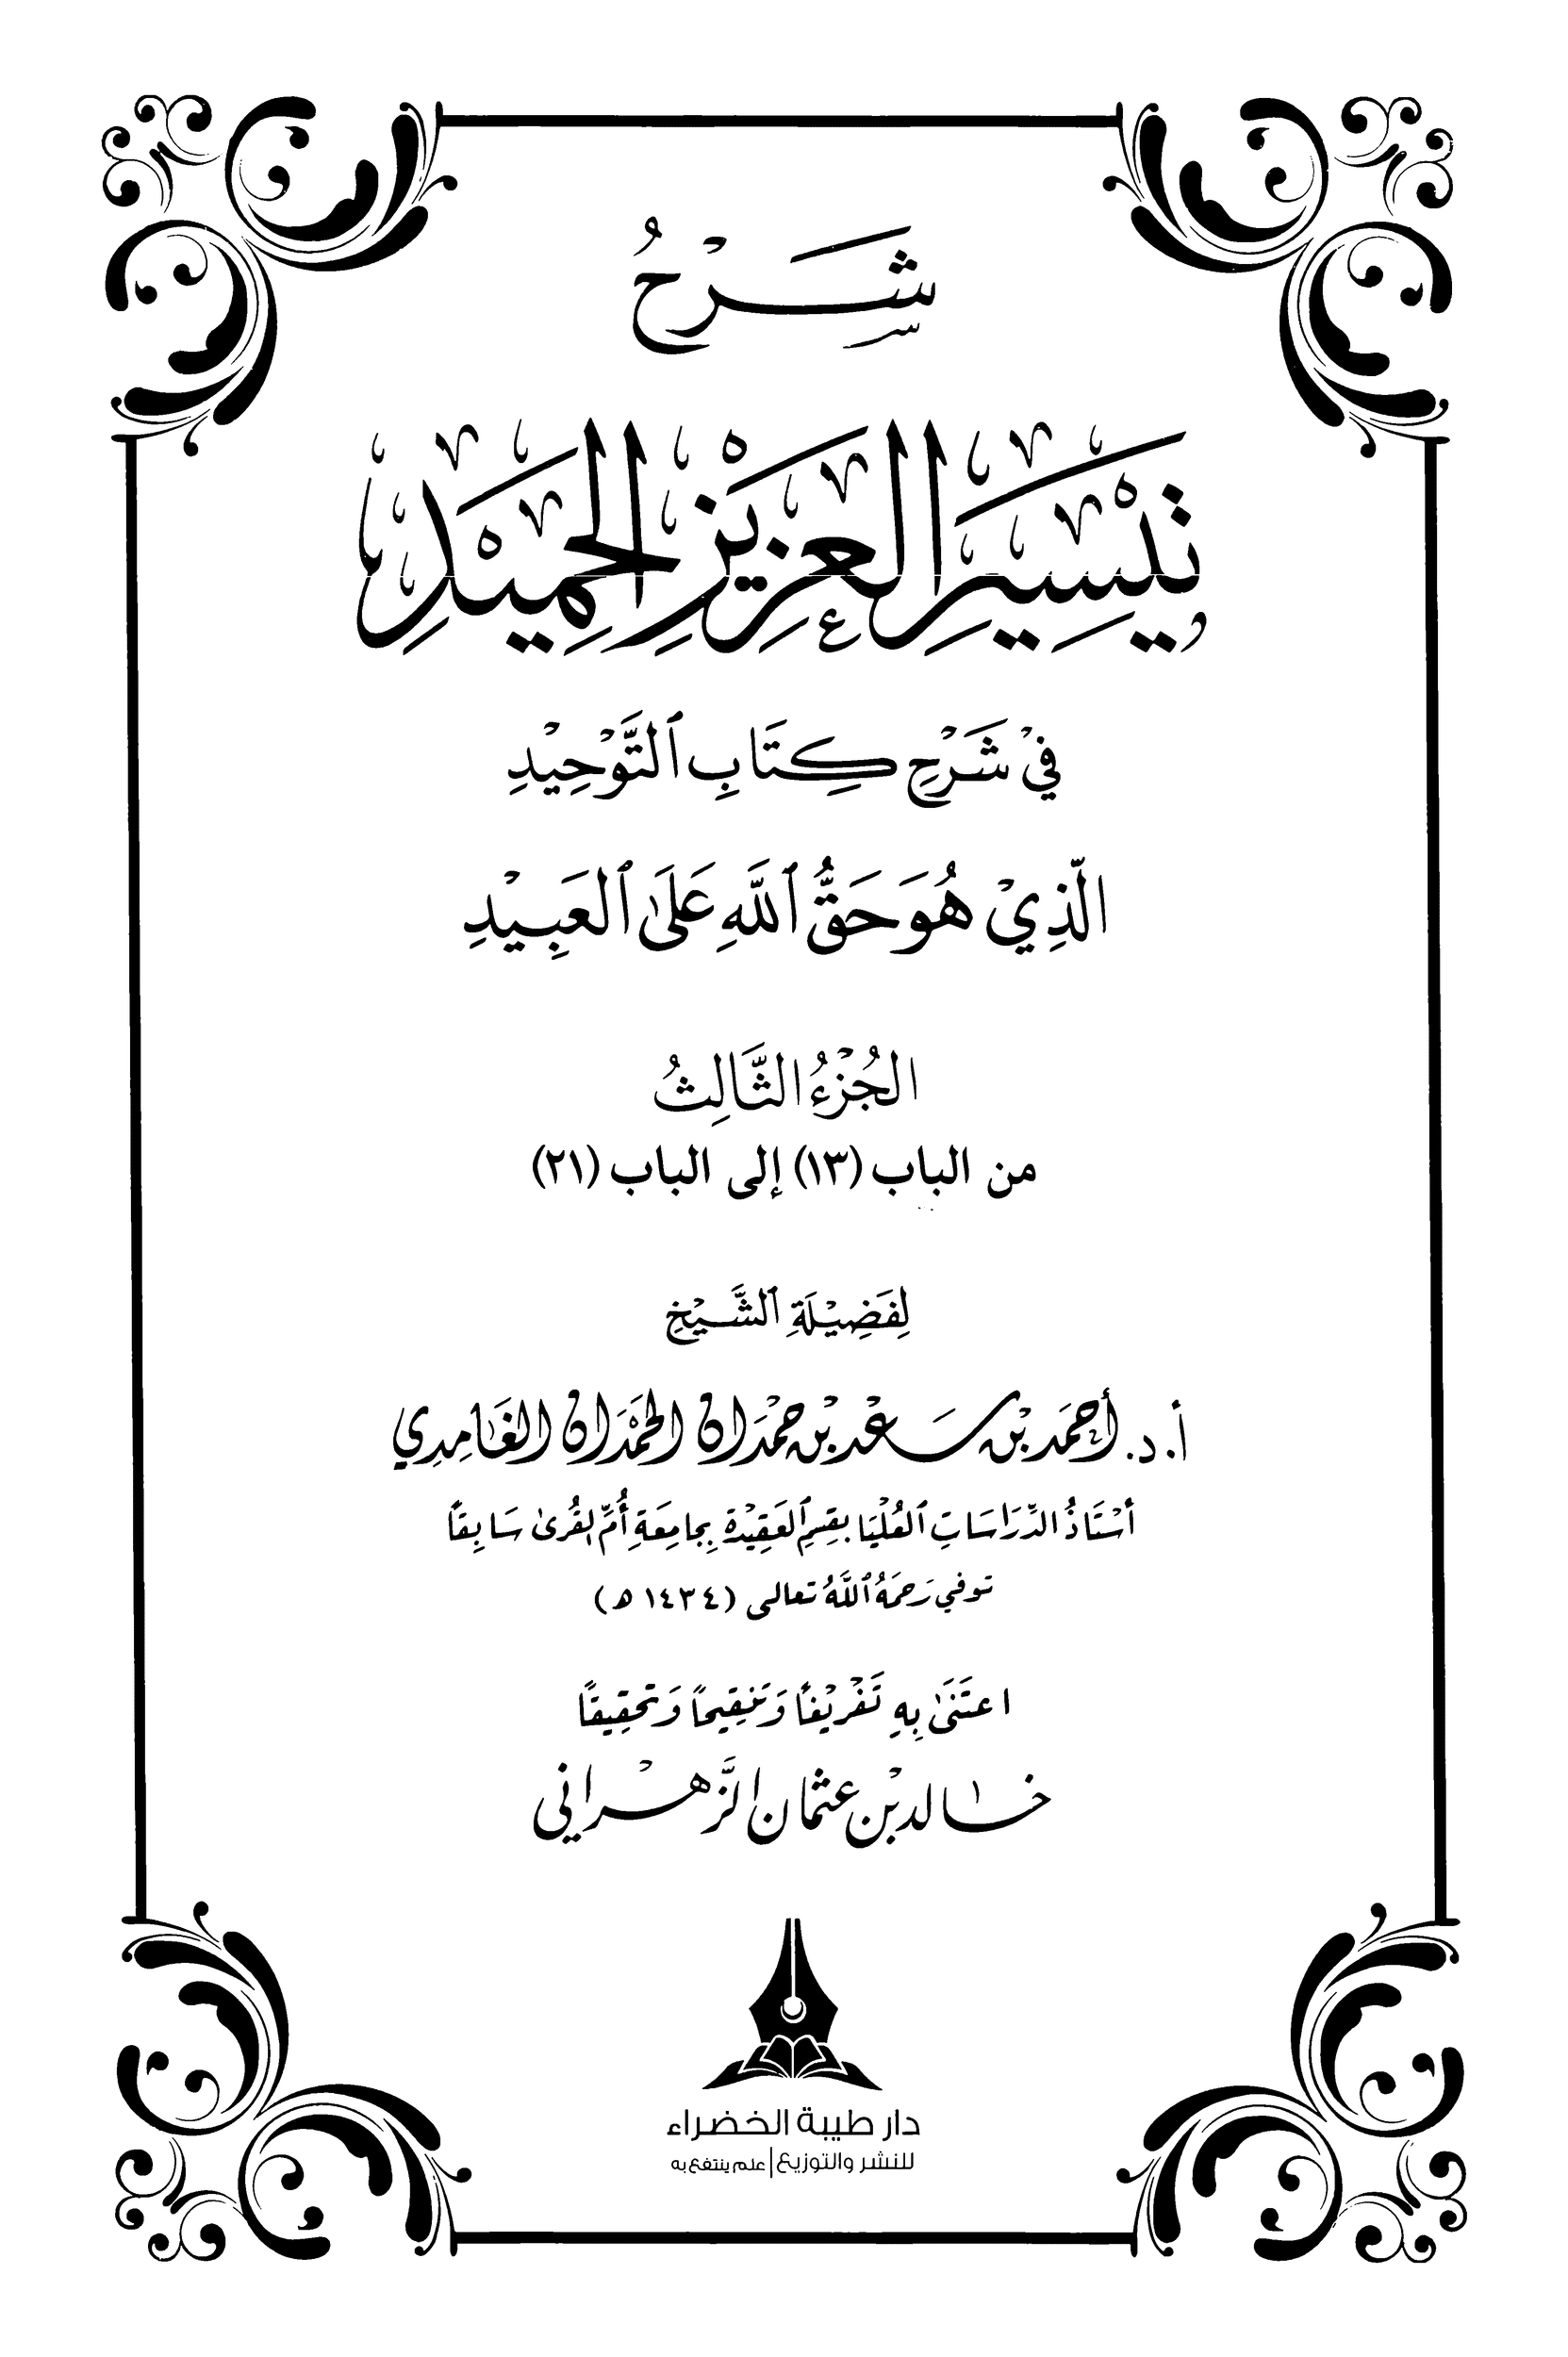 شَرْحُ
تَيْسِيْرِ الْعَزِيْزِ الْحَمِيْدِ
فِيْ شَرْحِ كِتَابِ ٱلتَّوْحِيْدِ
الَّذِيْ هُوَ حَقُّ ٱللَّهِ عَلَىٰ ٱلعَبِيْدِ
الجُزْءُ الثَّالِثُ
من الباب (١٣) إلى الباب (٢١)
لِفَضِيْلَةِ ٱلشَّيْخِ
أ. د. أَحْمَد بْن سَعْد بْن حَمْدَان الحَمْدَان الغَامِدِي
أُسْتَاذُ الدِّرَاسَاتِ ٱلعُلْيَا بِقِسْمِ ٱلعَقِيْدَةِ بِجَامِعَةِ أُمِّ القُرَىٰ سَابِقاً
توفي رَحِمَهُ ٱللَّهُ تعالى (١٤٣٤ هـ)
اعتَنَىٰ بِهِ تَفْرِيْغاً وَتَنقِيحاً وَتَحقِيقاً
خَالد بْن عثمان الزَّهْراني
دار طيبة الخضراء
للنشر والتوزيع | علم ينتفع به